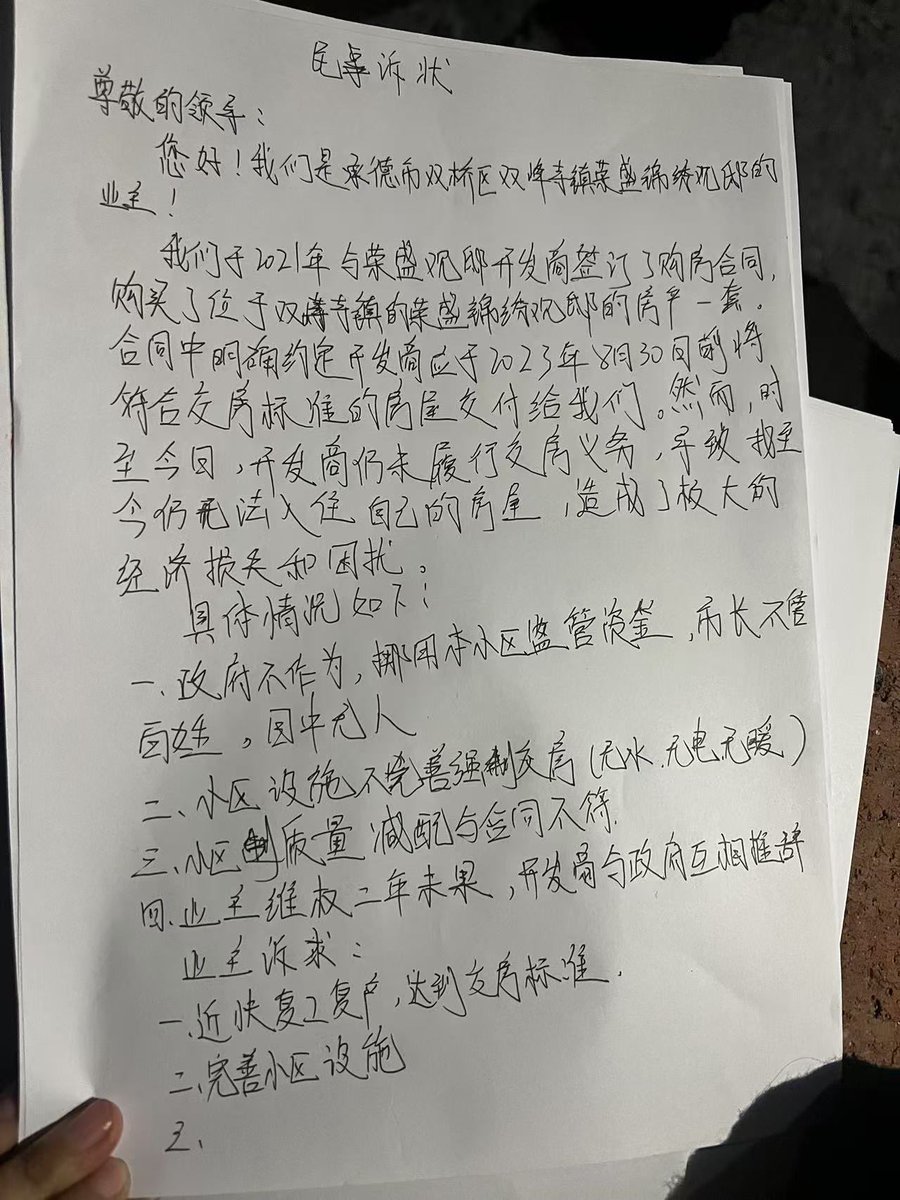 民事诉状
尊敬的领导：
您好！我们是承德市双桥区双峰寺镇荣盛锦绣观邸的
业主！
我们于2021年与荣盛观邸开发商签订了购房合同，
购买了位于双峰寺镇的荣盛锦绣观邸的房产一套。
合同中明确约定开发商应于2023年8月30日前将
符合交房标准的房屋交付给我们。然而，时
至今日，开发商仍未履行交房义务，导致我至
今仍无法入住自己的房屋，造成了极大的
经济损失和困扰。
具体情况如下：
一、政府不作为，挪用本小区监管资金，市长不管
百姓，目中无人
二、小区设施不完善强制交房（无水.无电无暖）
三、小区质量减配与合同不符.
四.业主维权二年未果，开发商与政府互相推辞
业主诉求：
一.近快复工复产，达到交房标准.
二、完善小区设施
三、